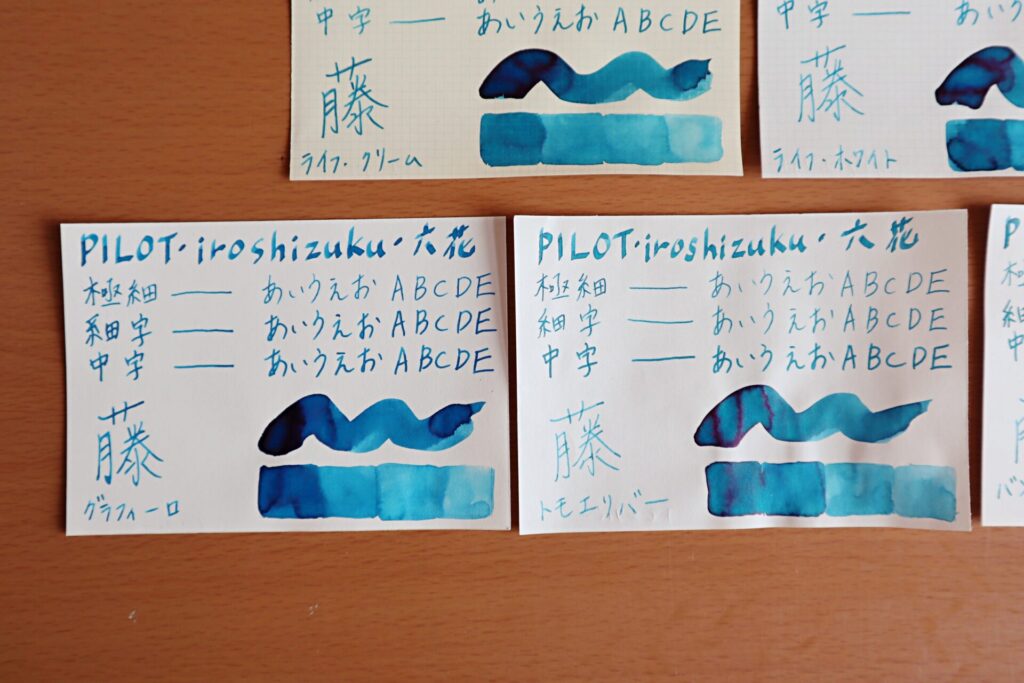 中字 — あいうえお ABCDE
藤
ライフ・クリーム
中字 — あいう
藤
ライフ・ホワイト
PILOT・iroshizuku・六花
極細 — あいうえお ABCDE
細字 — あいうえお ABCDE
中字 — あいうえお ABCDE
藤
グラフィーロ
PILOT・iroshizuku・六花
極細 — あいうえお ABCDE
細字 — あいうえお ABCDE
中字 — あいうえお ABCDE
藤
トモエリバー
P
極
細
中
バン